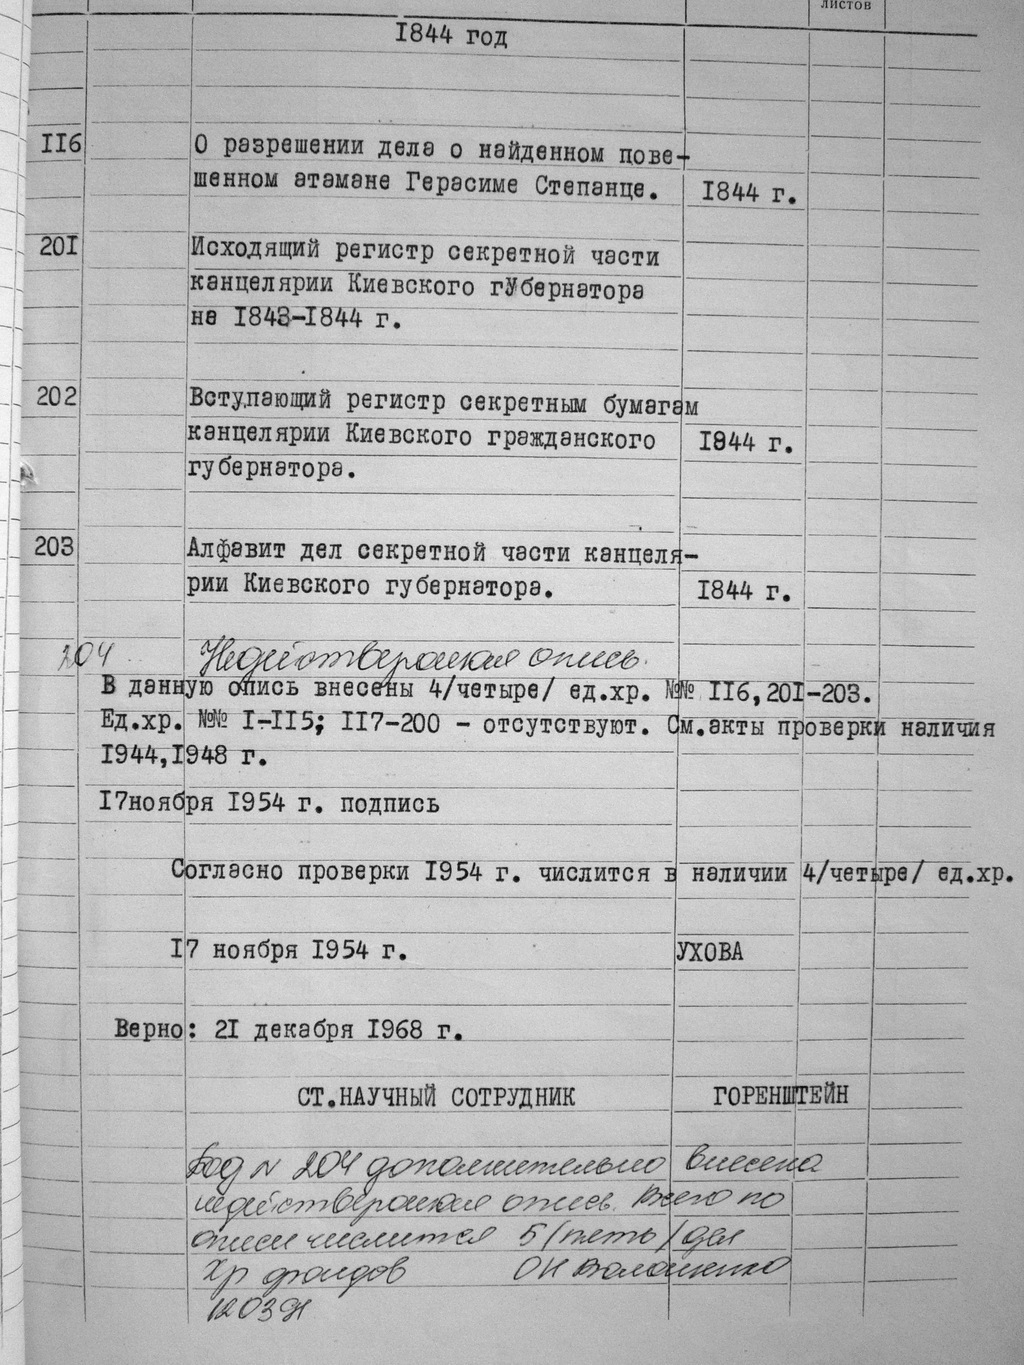 листов
1844 год
116 О разрешении дела о найденном пове-
шенном атамане Герасиме Степанце. 1844 г.
201 Исходящий регистр секретной части
канцелярии Киевского губернатора
на 1843-1844 г.
202 Вступающий регистр секретным бумагам
канцелярии Киевского гражданского 1844 г.
губернатора.
203 Алфавит дел секретной части канцеля-
рии Киевского губернатора. 1844 г.
204 Недействующая опись.
В данную опись внесены 4/четыре/ ед.хр. №№ 116,201-203.
Ед.хр. №№ 1-115; 117-200 - отсутствуют. См.акты проверки наличия
1944,1948 г.
17ноября 1954 г. подпись
Согласно проверки 1954 г. числится в наличии 4/четыре/ ед.хр.
17 ноября 1954 г. УХОВА
Верно: 21 декабря 1968 г.
СТ.НАУЧНЫЙ СОТРУДНИК ГОРЕНШТЕЙН
Под № 204 дополнительно внесена
недействующая опись. Всего по
описи числится 5/пять/дел
Хр фондов